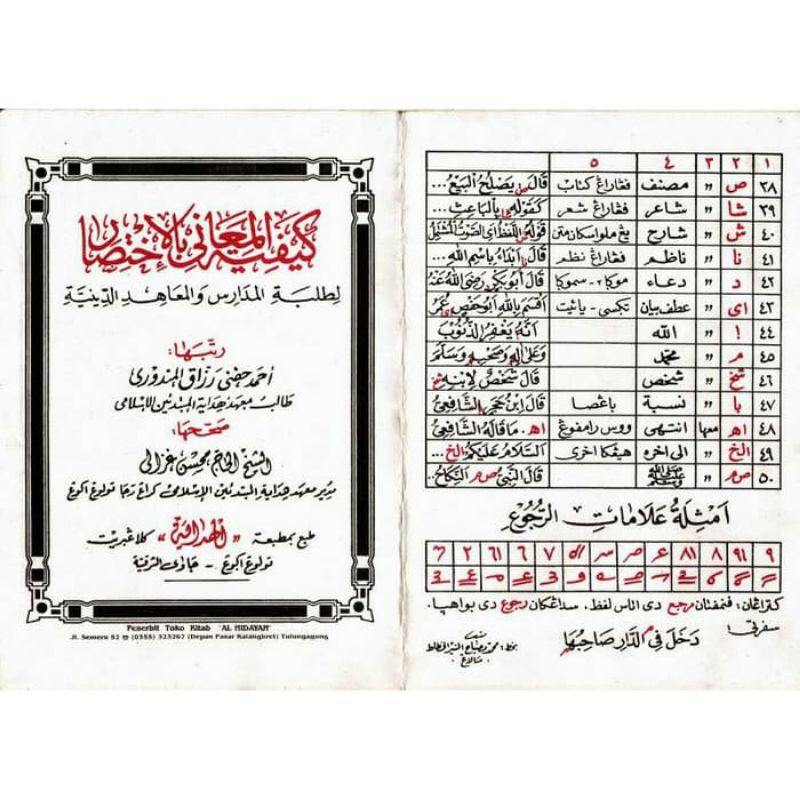 كيفية المعاني بالإختصار
لطلبة المدارس والمعاهد الدينية
رتبها:
أحمد حضني رزاق المندوري
طالب معهد هداية المبتدئين الإسلامي
صححها:
الشيخ الحاج محسن غزالي
مدير معهد هداية المبتدئين الإسلامي كراغ رجا تولوغ اكوغ
طبع بمطبعة "الهداية" كلاغبريت
تولوغ اكوغ - جاوى الشرقية
Penerbit Toko Kitab 'AL HIDAYAH'
Jl. Semeru 52 ☎ (0355) 323267 (Depan Pasar Kalangbret) Tulungagung
١ ٢ ٣ ٤ ٥
٣٨ ص " مصنف فڠاراڠ كتاب قال ص يصلح البيع...
٣٩ شا " شاعر فڠاراڠ شعر كقوله شا بالباعث...
٤٠ ش " شارح يڠ ملواسكان متن قوله ش اللفظ اي الصوت المشتمل
٤١ نا " ناظم فڠاراڠ نظم قال نا أبداء باسم الله...
٤٢ د " دعاء موكا٢-سموكا قال أبو بكر د رضي الله عنه
٤٣ اى " عطف بيان تكسى-يائيت اقسم بالله أبو حفص اى عمر
٤٤ ا " الله انه يغفر الذنوب
٤٥ م " محمد وعلى اله وصحبه وسلم
٤٦ شخ " شخص قال شخص لإبنه شخ
٤٧ با " نسبة باڠصا قال ابن حجر با الشافعي
٤٨ اهـ معها انتهى ووس رامفوڠ اهـ. ما قاله الشافعي
٤٩ الخ " الى اخره هيڠكا اخرى السلام عليكم الخ...
٥٠ صم " صلى الله وسلم قال النبي صم النكاح...
امثلة علامات الرجوع
٩ ٩١ ٨ ٨١
٧ ٦ ٦١ ٢
كتراڠان: فنمفتان رجع دى اتاس لفظ. سداڠكان رجوع دى بواهپا.
سفرتى: دخل في الدار صاحبها